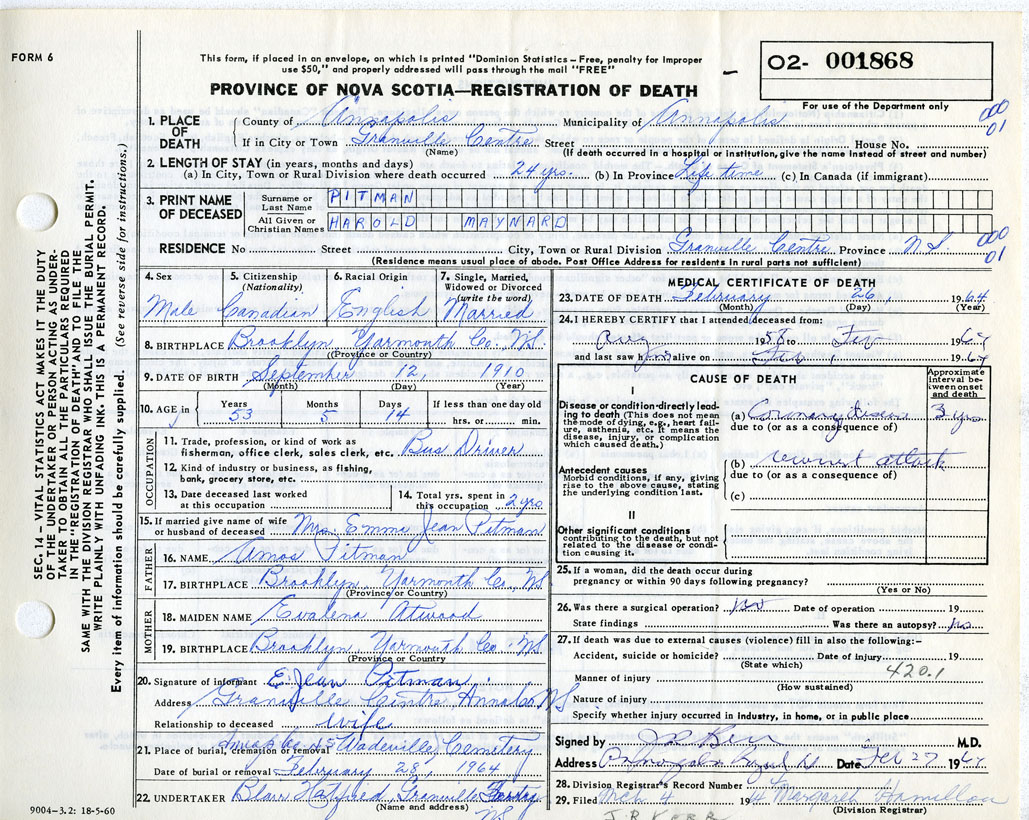 FORM 6
This form, if placed in an envelope, on which is printed "Dominion Statistics – Free, penalty for improper
use $50," and properly addressed will pass through the mail "FREE"
O2- 001868
PROVINCE OF NOVA SCOTIA—REGISTRATION OF DEATH
For use of the Department only
1. PLACE OF DEATH
County of Annapolis Municipality of Annapolis
000
01
If in City or Town Granville Centre Street House No.
(Name) (If death occurred in a hospital or institution, give the name instead of street and number)
2. LENGTH OF STAY (in years, months and days)
(a) In City, Town or Rural Division where death occurred 24 yrs. (b) In Province Life time (c) In Canada (if immigrant)
3. PRINT NAME OF DECEASED
Surname or Last Name PITMAN
All Given or Christian Names HAROLD MAYNARD
RESIDENCE No Street City, Town or Rural Division Granville Centre Province N.S.
000
01
(Residence means usual place of abode. Post Office Address for residents in rural parts not sufficient)
4. Sex Male
5. Citizenship (Nationality) Canadian
6. Racial Origin English
7. Single, Married, Widowed or Divorced (write the word) Married
8. BIRTHPLACE Brooklyn Yarmouth Co., NS
(Province or Country)
9. DATE OF BIRTH September 12, 1910
(Month) (Day) (Year)
10. AGE in Years 53 Months 5 Days 14 If less than one day old hrs. or min.
OCCUPATION
11. Trade, profession, or kind of work as
fisherman, office clerk, sales clerk, etc. Bus Driver
12. Kind of industry or business, as fishing,
bank, grocery store, etc.
13. Date deceased last worked
at this occupation
14. Total yrs. spent in
this occupation 2 yrs
15. If married give name of wife
or husband of deceased Mrs. Emma Jean Pitman
FATHER
16. NAME Amos Pitman
17. BIRTHPLACE Brooklyn Yarmouth Co., NS
(Province or Country)
MOTHER
18. MAIDEN NAME Evalena Atwood
19. BIRTHPLACE Brooklyn Yarmouth Co., NS
(Province or Country)
20. Signature of informant E. Jean Pitman
Address Granville Centre Anna Co NS
Relationship to deceased wife
21. Place of burial, cremation or removal Wadeville Cemetery
Date of burial or removal February 28, 1964
22. UNDERTAKER Blair Granville Ferry
(Name and address) NS
MEDICAL CERTIFICATE OF DEATH
23. DATE OF DEATH February 26, 1964
(Month) (Day) (Year)
24. I HEREBY CERTIFY that I attended deceased from:
Aug 1958 to Feb 1964
and last saw him alive on Feb 1964
CAUSE OF DEATH
Approximate interval between onset and death
I
Disease or condition directly leading to death (This does not mean the mode of dying, e.g., heart failure, asthenia, etc. It means the disease, injury, or complication which caused death.)
(a) Coronary 3 yrs
due to (or as a consequence of)
Antecedent causes
Morbid conditions, if any, giving rise to the above cause, stating the underlying condition last.
(b) recurrent attack
due to (or as a consequence of)
(c)
II
Other significant conditions contributing to the death, but not related to the disease or condition causing it.
25. If a woman, did the death occur during
pregnancy or within 90 days following pregnancy?
(Yes or No)
26. Was there a surgical operation? no Date of operation 19
State findings Was there an autopsy? no
27. If death was due to external causes (violence) fill in also the following:–
Accident, suicide or homicide? Date of injury 19
(State which) 420.1
Manner of injury
(How sustained)
Nature of injury
Specify whether injury occurred in industry, in home, or in public place
Signed by M.D.
Address Date Feb 27 1964
28. Division Registrar's Record Number
29. Filed Mch 4 1964 Margaret Hamilton
(Division Registrar)
J.R KERR
SEC. 14 – VITAL STATISTICS ACT MAKES IT THE DUTY
OF THE UNDERTAKER OR PERSON ACTING AS UNDER-
TAKER TO OBTAIN ALL THE PARTICULARS REQUIRED
IN THE "REGISTRATION OF DEATH" AND TO FILE THE
SAME WITH THE DIVISION REGISTRAR WHO SHALL ISSUE THE BURIAL PERMIT.
WRITE PLAINLY WITH UNFADING INK. THIS IS A PERMANENT RECORD.
Every item of information should be carefully supplied. (See reverse side for instructions.)
9004–3.2: 18-5-60